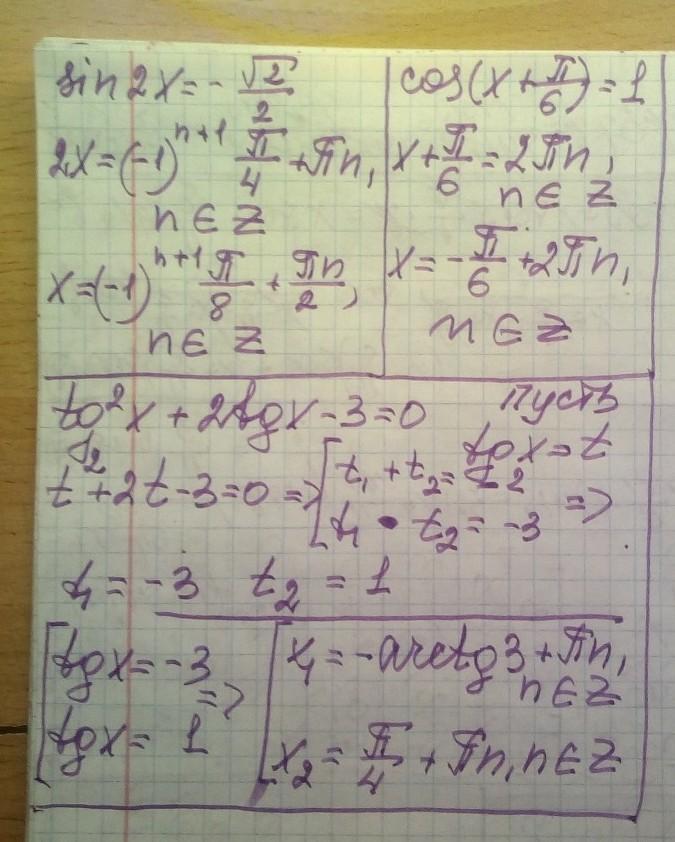 sin 2x = - √2/2
2x = (-1)^(n+1) π/4 + πn,
n ∈ Z
x = (-1)^(n+1) π/8 + πn/2,
n ∈ Z
cos(x + π/6) = 1
x + π/6 = 2πn,
n ∈ Z
x = - π/6 + 2πn,
n ∈ Z
tg²x + 2tgx - 3 = 0 Пусть
tgx = t
t² + 2t - 3 = 0 => [ t₁ + t₂ = -2
t₁ • t₂ = -3 =>
t₁ = -3 t₂ = 1
[ tgx = -3
tgx = 1 =>
[ x₁ = -arctg3 + πn,
n ∈ Z
x₂ = π/4 + πn, n ∈ Z